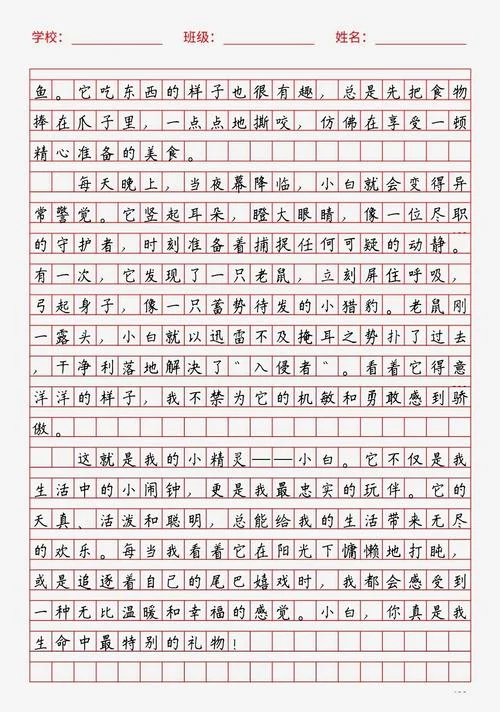 学校： 班级： 姓名：
鱼。它吃东西的样子也很有趣，总是先把食物
捧在爪子里，一点点地撕咬，仿佛在享受一顿
精心准备的美食。
每天晚上，当夜幕降临，小白就会变得异
常警觉。它竖起耳朵，瞪大眼睛，像一位尽职
的守护者，时刻准备着捕捉任何可疑的动静。
有一次，它发现了一只老鼠，立刻屏住呼吸，
弓起身子，像一只蓄势待发的小猎豹。老鼠刚
一露头，小白就以迅雷不及掩耳之势扑了过去
，干净利落地解决了“入侵者”。看着它得意
洋洋的样子，我不禁为它的机敏和勇敢感到骄
傲。
这就是我的小精灵——小白。它不仅是我
生活中的小闹钟，更是我最忠实的玩伴。它的
天真、活泼和聪明，总能给我的生活带来无尽
的欢乐。每当我看着它在阳光下慵懒地打盹，
或是追逐着自己的尾巴嬉戏时，我都会感受到
一种无比温暖和幸福的感觉。小白，你真是我
生命中最特别的礼物！